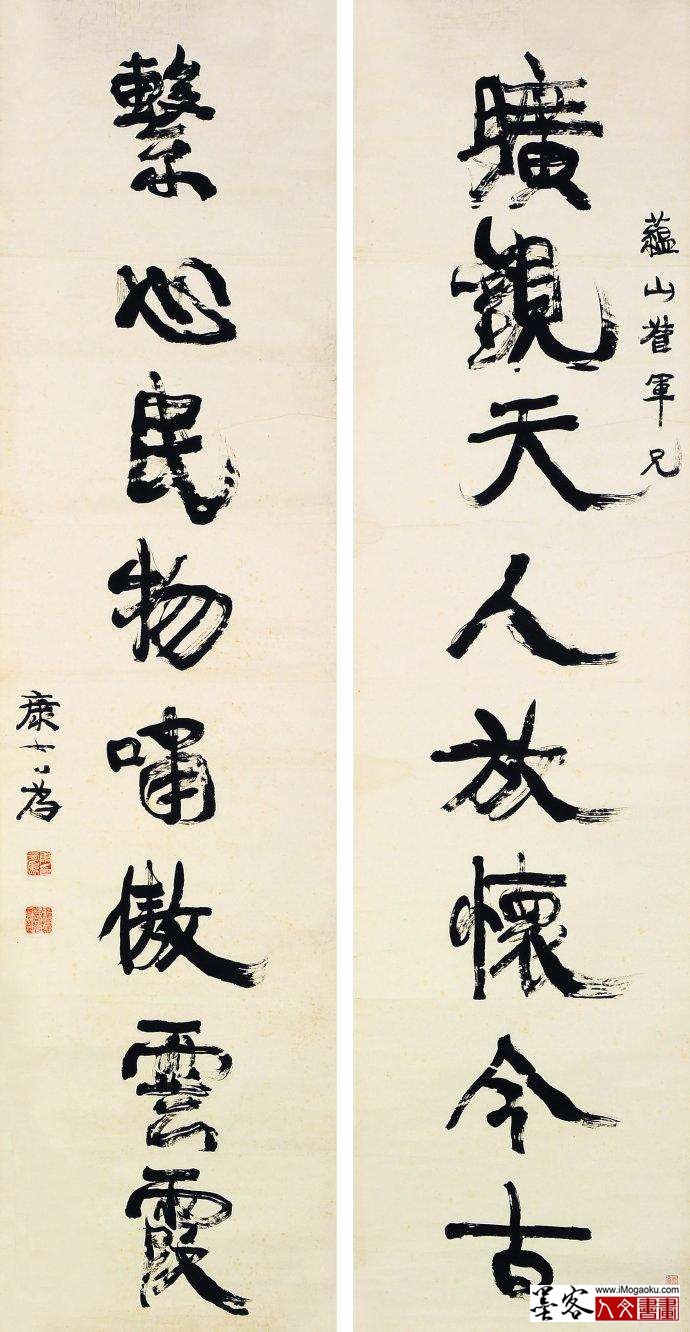 蘊山督軍兄
曠觀天人放懷今古
繫心民物嘯傲雲霞
康有為
www.iMogaoku.com
墨客
人文書畫